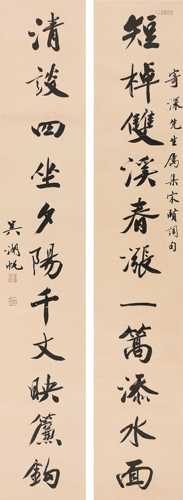 寄深先生属集宋贤词句
短棹雙溪春漲一篙添水面
清談四坐夕陽千丈映簾鉤
吴湖帆